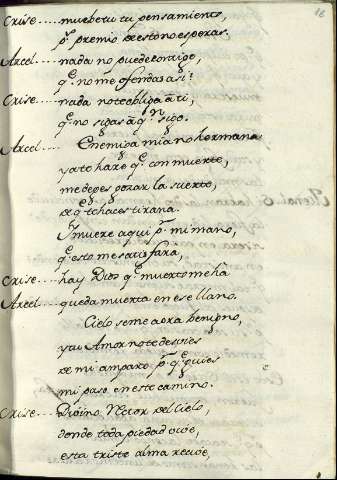 16
Crise.... muebetu tu pensamiento,
pr. premio de esto no esperas.
Arcel.... nada no puede contigo,
q.e no me ofendas así!
Crise.... nada note obliga a ti,
q.e no sigas a qn sigo.
Arcel.... Enemiga mia no hermana
ya te hare q.e con muerte,
me dejes gozar la suerte,
de q.e te haces tirana.
Y muere aqui pr. mi mano,
q.e esto me satisfará,
Crise.... hay Dios q.e muerto me ha
Arcel.... queda muerta en ese llano.
Cielo seme aora benigno,
y tu Amor no te desvies
de mi amparo pr. q.e guies
mi paso en este camino.
Crise.... Divino Rector del Cielo,
donde toda piedad vive,
esta triste alma recive,